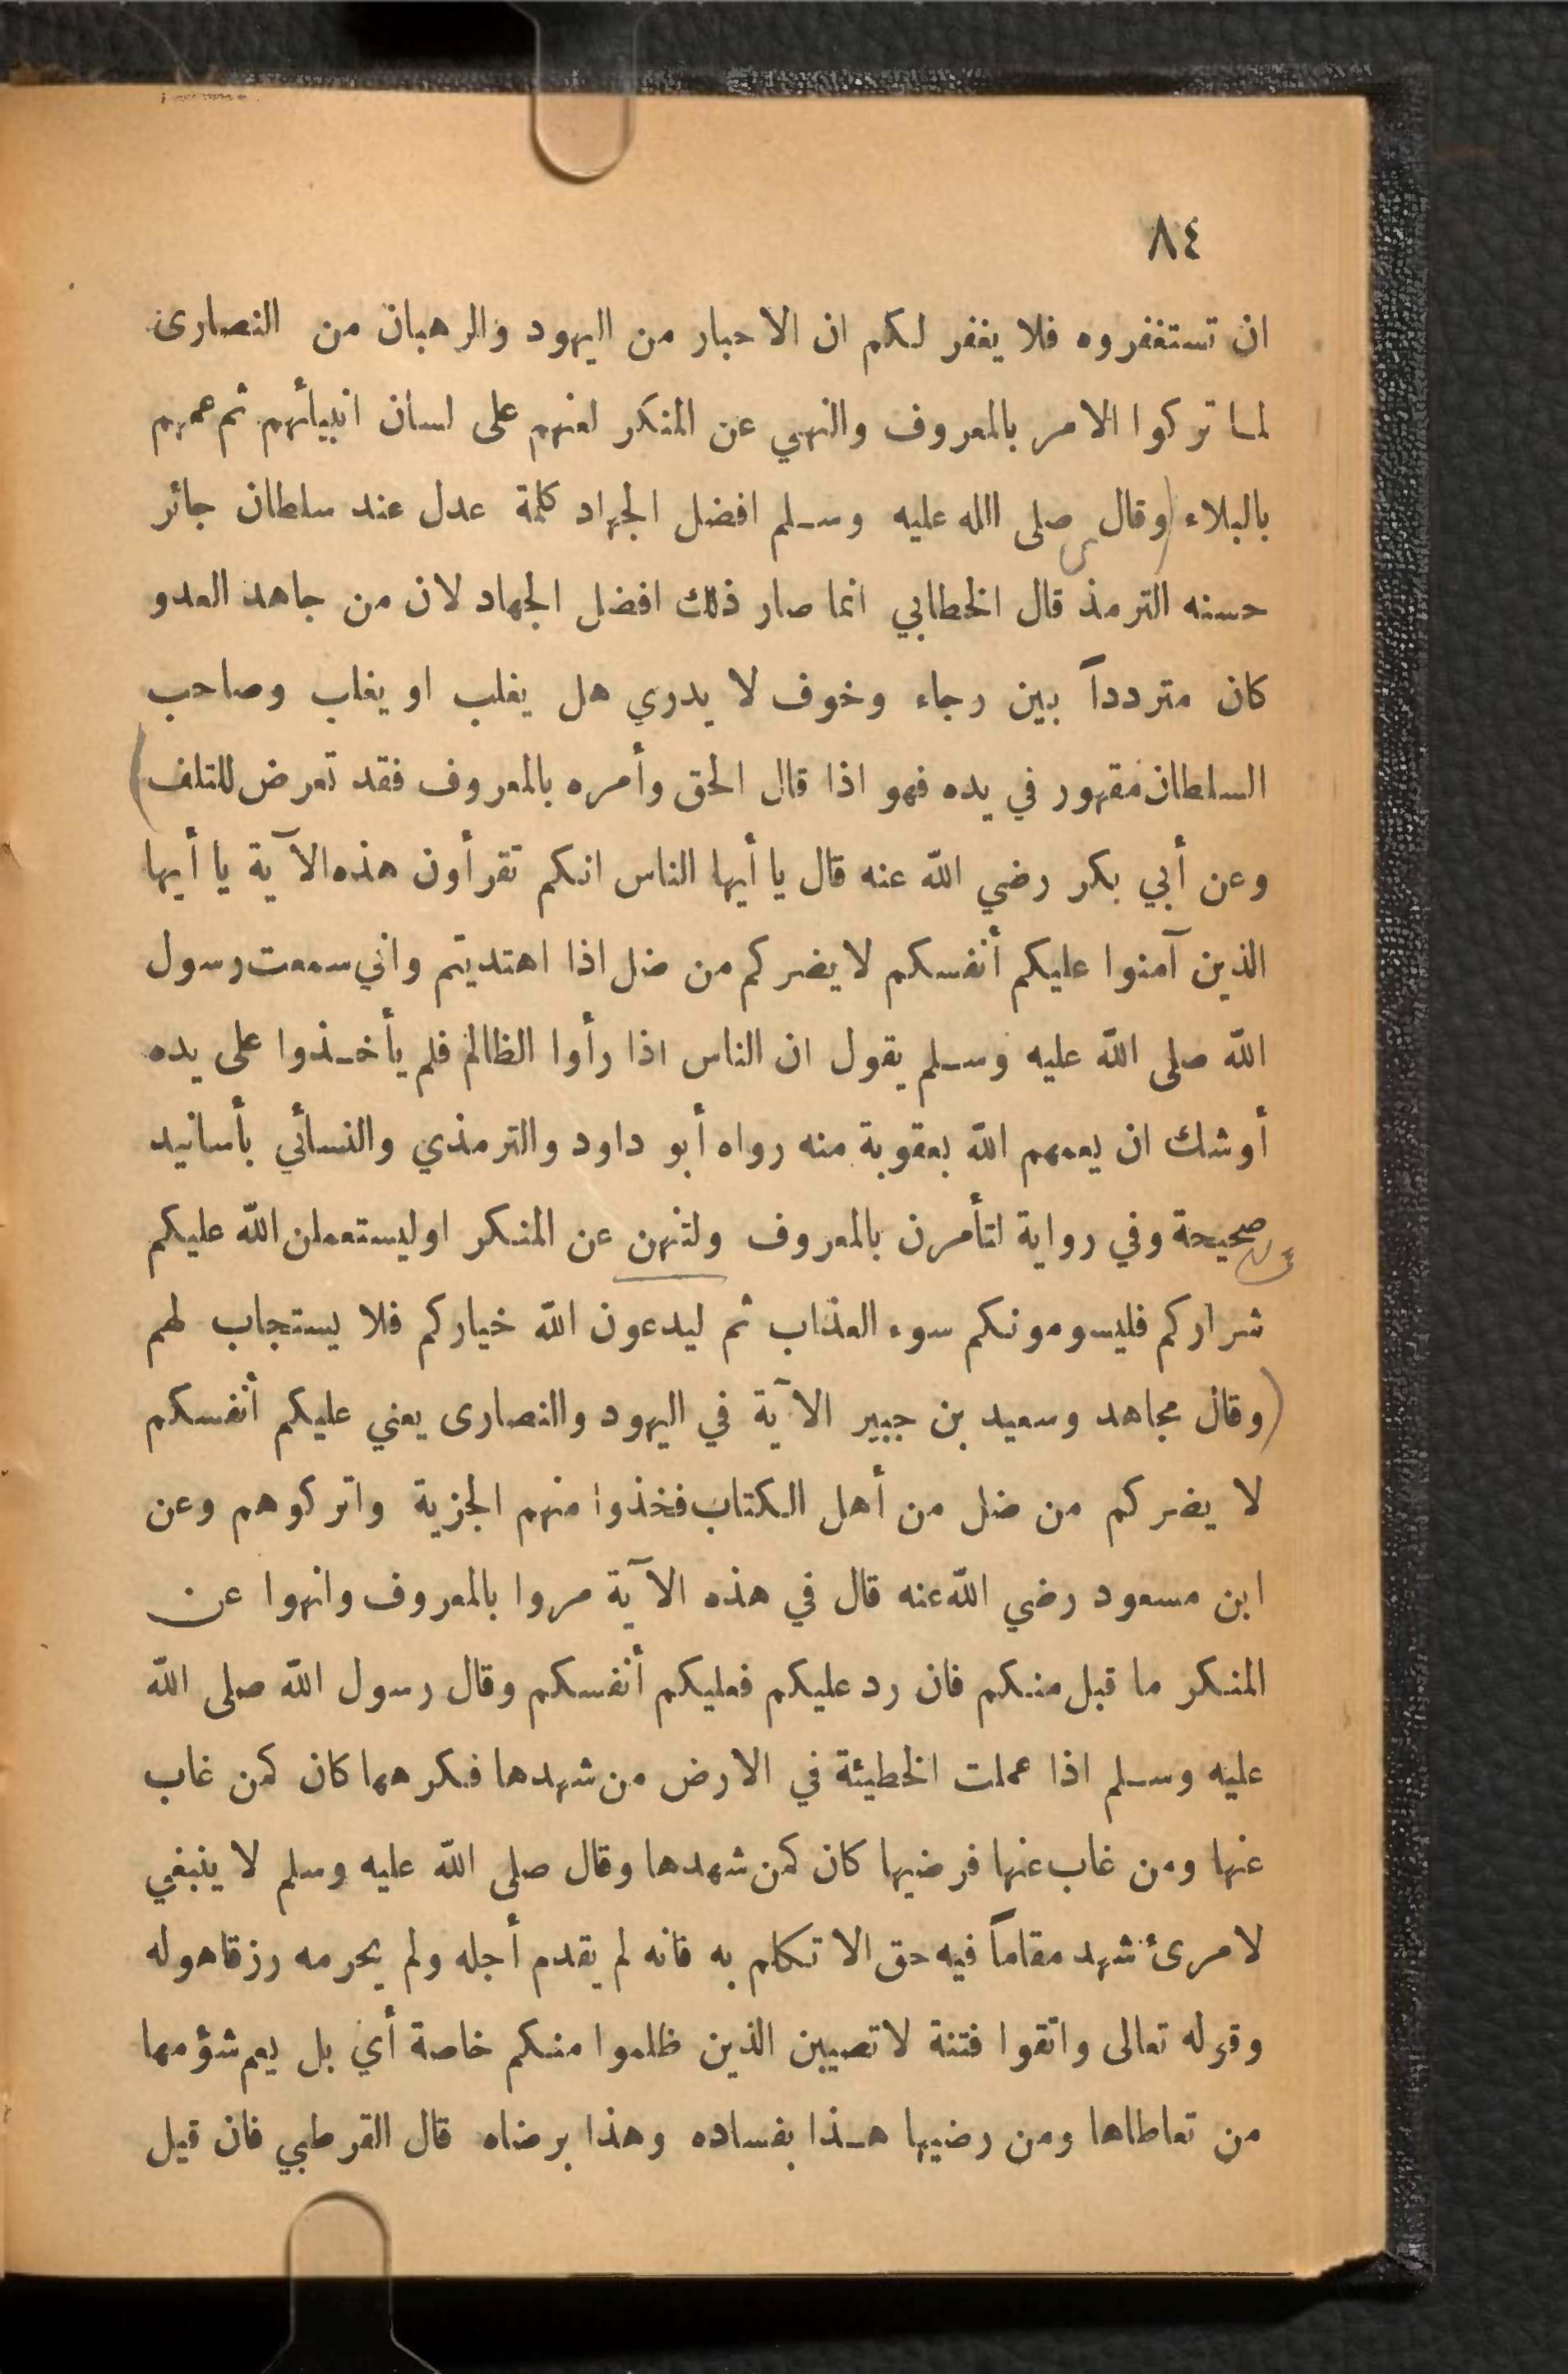 ٨٤
ان تستغفروه فلا يغفر لكم ان الاحبار من اليهود والرهبان من النصارى
لما تركوا الامر بالمعروف والنهي عن المنكر لعنهم على لسان انبيائهم ثم عمهم
بالبلاء (وقال صلى الله عليه وسلم افضل الجهاد كلمة عدل عند سلطان جائر
حسنه الترمذ قال الخطابي انما صار ذلك افضل الجهاد لان من جاهد العدو
كان متردداً بين رجاء وخوف لا يدري هل يغلب او يغلب وصاحب
السلطان مقهور في يده فهو اذا قال الحق وأمره بالمعروف فقد تعرض للتلف)
وعن أبي بكر رضي الله عنه قال يا أيها الناس انكم تقرأون هذه الآية يا أيها
الذين آمنوا عليكم أنفسكم لا يضركم من ضل اذا اهتديتم واني سمعت رسول
الله صلى الله عليه وسلم يقول ان الناس اذا رأوا الظالم فلم يأخذوا على يده
أوشك ان يعمهم الله بعقوبة منه رواه أبو داود والترمذي والنسائي بأسانيد
صحيحة وفي رواية لتأمرن بالمعروف ولتنهن عن المنكر او ليستعملن الله عليكم
شراركم فليسومونكم سوء العذاب ثم ليدعون الله خياركم فلا يستجاب لهم
(وقال مجاهد وسعيد بن جبير الآية في اليهود والنصارى يعني عليكم أنفسكم
لا يضركم من ضل من أهل الكتاب فخذوا منهم الجزية واتركوهم وعن
ابن مسعود رضي الله عنه قال في هذه الآية مروا بالمعروف وانهوا عن
المنكر ما قبل منكم فان رد عليكم فعليكم أنفسكم وقال رسول الله صلى الله
عليه وسلم اذا عملت الخطيئة في الارض من شهدها فكرهها كان كمن غاب
عنها ومن غاب عنها فرضيها كان كمن شهدها وقال صلى الله عليه وسلم لا ينبغي
لامرئ شهد مقاماً فيه حق الا تكلم به فانه لم يقدم أجله ولم يحرمه رزقا هو له
وقوله تعالى واتقوا فتنة لا تصيبن الذين ظلموا منكم خاصة أي بل يعم شؤمها
من تعاطاها ومن رضيها هذا بفساده وهذا برضاه قال القرطبي فان قيل